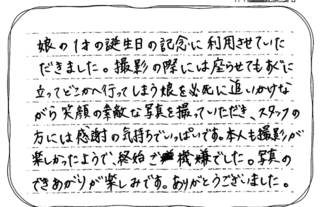 娘の1才の誕生日の記念に利用させていた
だきました。撮影の際には座らせてもすぐに
立ってどこかへ行ってしまう娘を必死に追いかけな
がら笑顔の素敵な写真を撮っていただき、スタッフの
方には感謝の気持ちでいっぱいです。本人も撮影が
楽しかったようで、終始ご機嫌でした。写真の
できあがりが楽しみです。ありがとうございました。